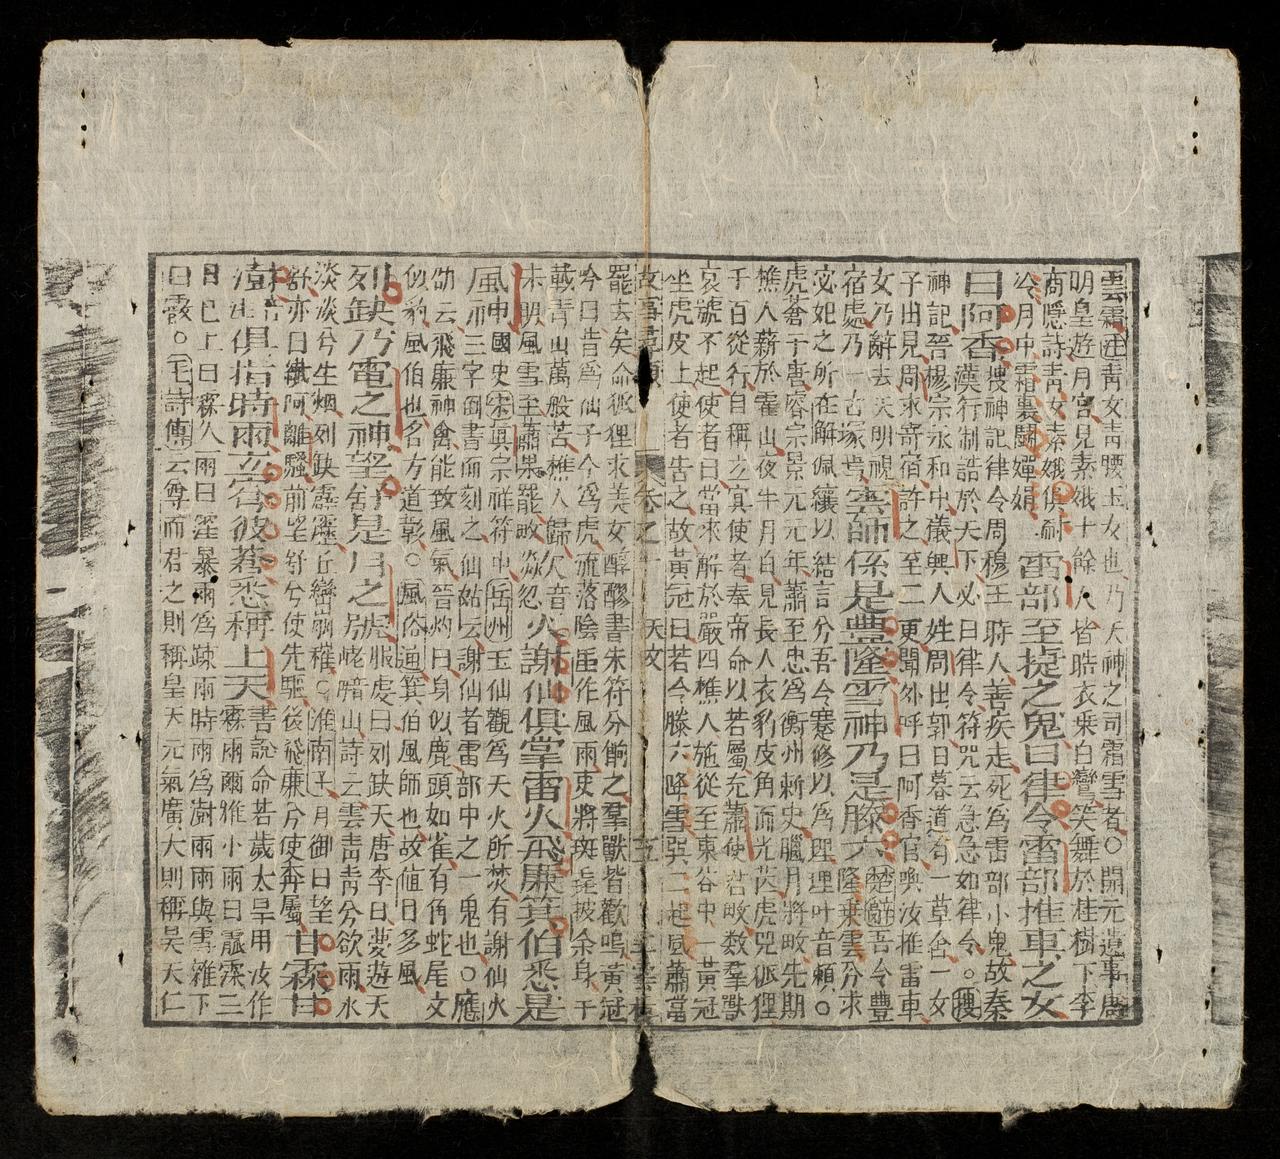 雲霜注靑女靑腰玉女也乃天神之司霜雪者○開元遺事唐
明皇遊月宮見素娥十餘人皆晧衣乘白鸞笑舞於桂樹下李
商隱詩靑女素娥俱耐
冷月中霜裏鬪嬋娟 雷部至捷之鬼曰律令雷部推車之女
曰阿香 漢行制誥於天下必曰律令符咒云急急如律令○搜
搜神記律令周穆王時人善疾走死爲雷部小鬼故秦
神記晉楊宗永和中儀興人姓周出郭日暮道有一草舍一女
子出見周求寄宿許之至二更聞外呼曰阿香官喚汝推雷車
女乃辭去天明視
宿處乃一古塚 雲師係是豐隆雪神乃是滕六 楚辭吾令豐
隆乗雲兮求
宓妃之所在解佩纕以結言兮吾令蹇修以爲理理叶音賴○
虎薈于唐睿宗景元元年蕭至忠爲衡州刺史臘月將畋先期
樵人薪於霍山夜半月白見長人衣豹皮角而光茨虎兕狐狸
千百從行自稱立冥使者奉帝命以若屬充蕭使君畋數羣獸
哀號不起使者曰當來解於嚴四樵人施從至東谷中一黃冠
坐虎皮上使者告之故黃冠曰若令滕六降雪巽二起風蕭當
故事尋源 卷之一 天文
罷去矣命狐狸求美女醇醪書朱符分餉之羣獸皆歡鳴黃冠
吟曰昔爲仙子今爲虎流落陰崖作風雨更將斑毳披余身千
載靑山萬般苦樵人歸
未明風雪至蕭果罷畋 欻音忽火謝仙俱掌雷火飛廉箕伯悉是
風神 中國史宋眞宗祥符中岳州玉仙觀爲天火所焚有謝仙火
三字倒書而刻之仙姑云謝仙者雷部中之一鬼也○應
劭云飛廉神禽能致風氣晉灼曰身似鹿頭如雀有角蛇尾文
似豹風伯也名方道彰○風俗通箕伯風師也故値日多風
列缺乃電之神望舒是月之御 服虔曰列缺天唐李白夢遊天
姥歌暗山詩云雲靑靑兮欲雨水
淡淡兮生烟列缺霹靂丘巒崩摧○淮南子月御曰望
舒亦曰纖阿離騷前望舒兮使先驅後飛廉兮使奔屬 甘霖甘
澍俱指時雨玄穹彼蒼悉稱上天 書說命若歲大旱用汝作
霖雨爾雅小雨曰霢霂三
日已上曰霖久雨曰淫暴雨爲疎雨時雨爲澍雨雨與雪雜下
曰霰○毛詩傳云尊而君之則稱皇天元氣廣大則稱昊天仁